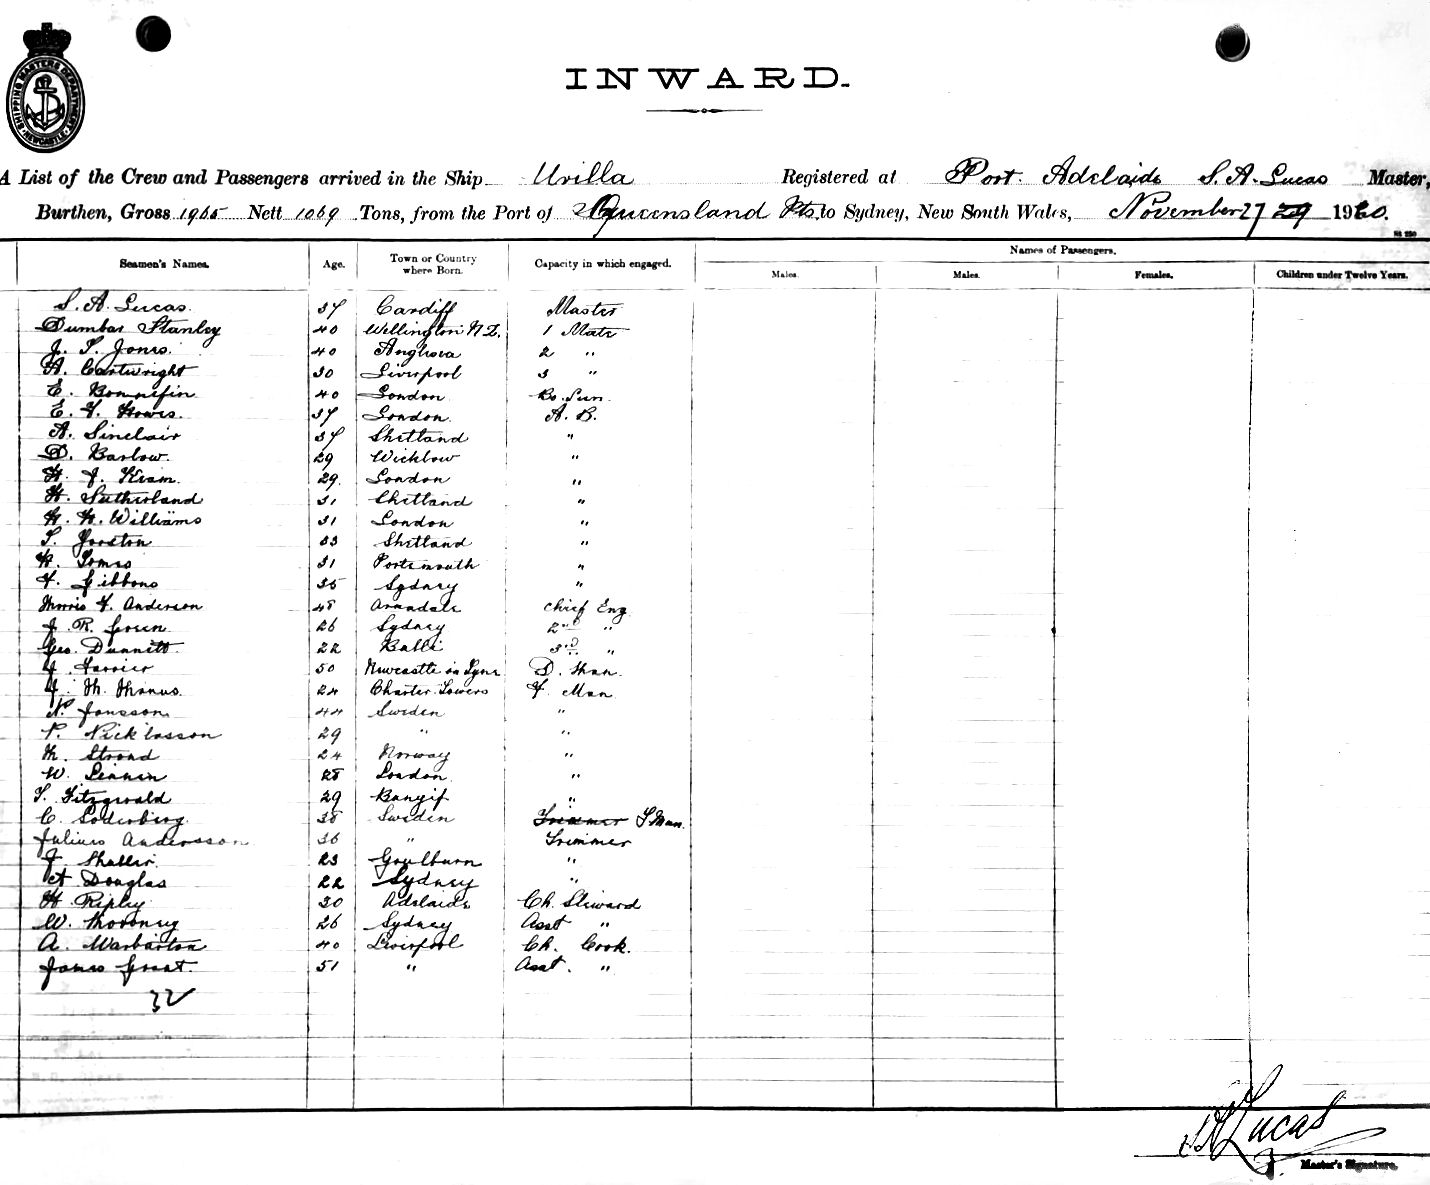 SHIPPING MASTERS DEPARTMENT NEWCASTLE
INWARD.
A List of the Crew and Passengers arrived in the Ship Urilla Registered at Port Adelaide S. A. Lucas Master,
Burthen, Gross 1965 Nett 1069 Tons, from the Port of Queensland Pts. to Sydney, New South Wales, November 27 29 19
Seamen's Names. Age. Town or Country where Born. Capacity in which engaged. Names of Passengers.
Males. Males. Females. Children under Twelve Years.
S. A. Lucas. 37 Cardiff Master
Dumbar Stanley 40 Wellington N Z. 1 Mate
J. S. Jones. 40 2 "
A. Cartwright 30 Liverpool 3 "
E. 40 London Bo. Sun.
E. F. Howes. 37 London. A. B.
A. Sinclair 37 Shetland "
D. Barlow. 29 Wicklow "
H. J. 29. London "
H. Sutherland 31 Shetland "
H. H. Williams 31 London "
T. Yorston 33 Shetland "
H. 31 Portsmouth "
F. Gibbons 35 Sydney "
Morris F. Anderson 48 Annadale Chief Eng
J. R. Green 26 Sydney 2nd "
Geo. Dunnett 22 Bulli 3rd "
J. Farrier 50 Newcastle on Tyne D. Man.
J. M. 24 Charter Towers F. Man
N. Jonsson 44 Sweden "
P. Nicklasson 29 " "
M. Strand 24 Norway "
W. 28 London "
T. Fitzgerald 29 Bunyip "
C. Soderberg. 38 Sweden Trimmer F Man.
Julius Andersson 36 " Trimmer
J. 23 Goulburn "
A Douglas 22 Sydney "
H. Ripley 30 Adelaide Ch. Steward
W. 26 Sydney Asst "
A. Warbarton 40 Liverpool Ch. Cook.
James Grant. 51 " Asst. "
32
S A Lucas
Master's Signature.